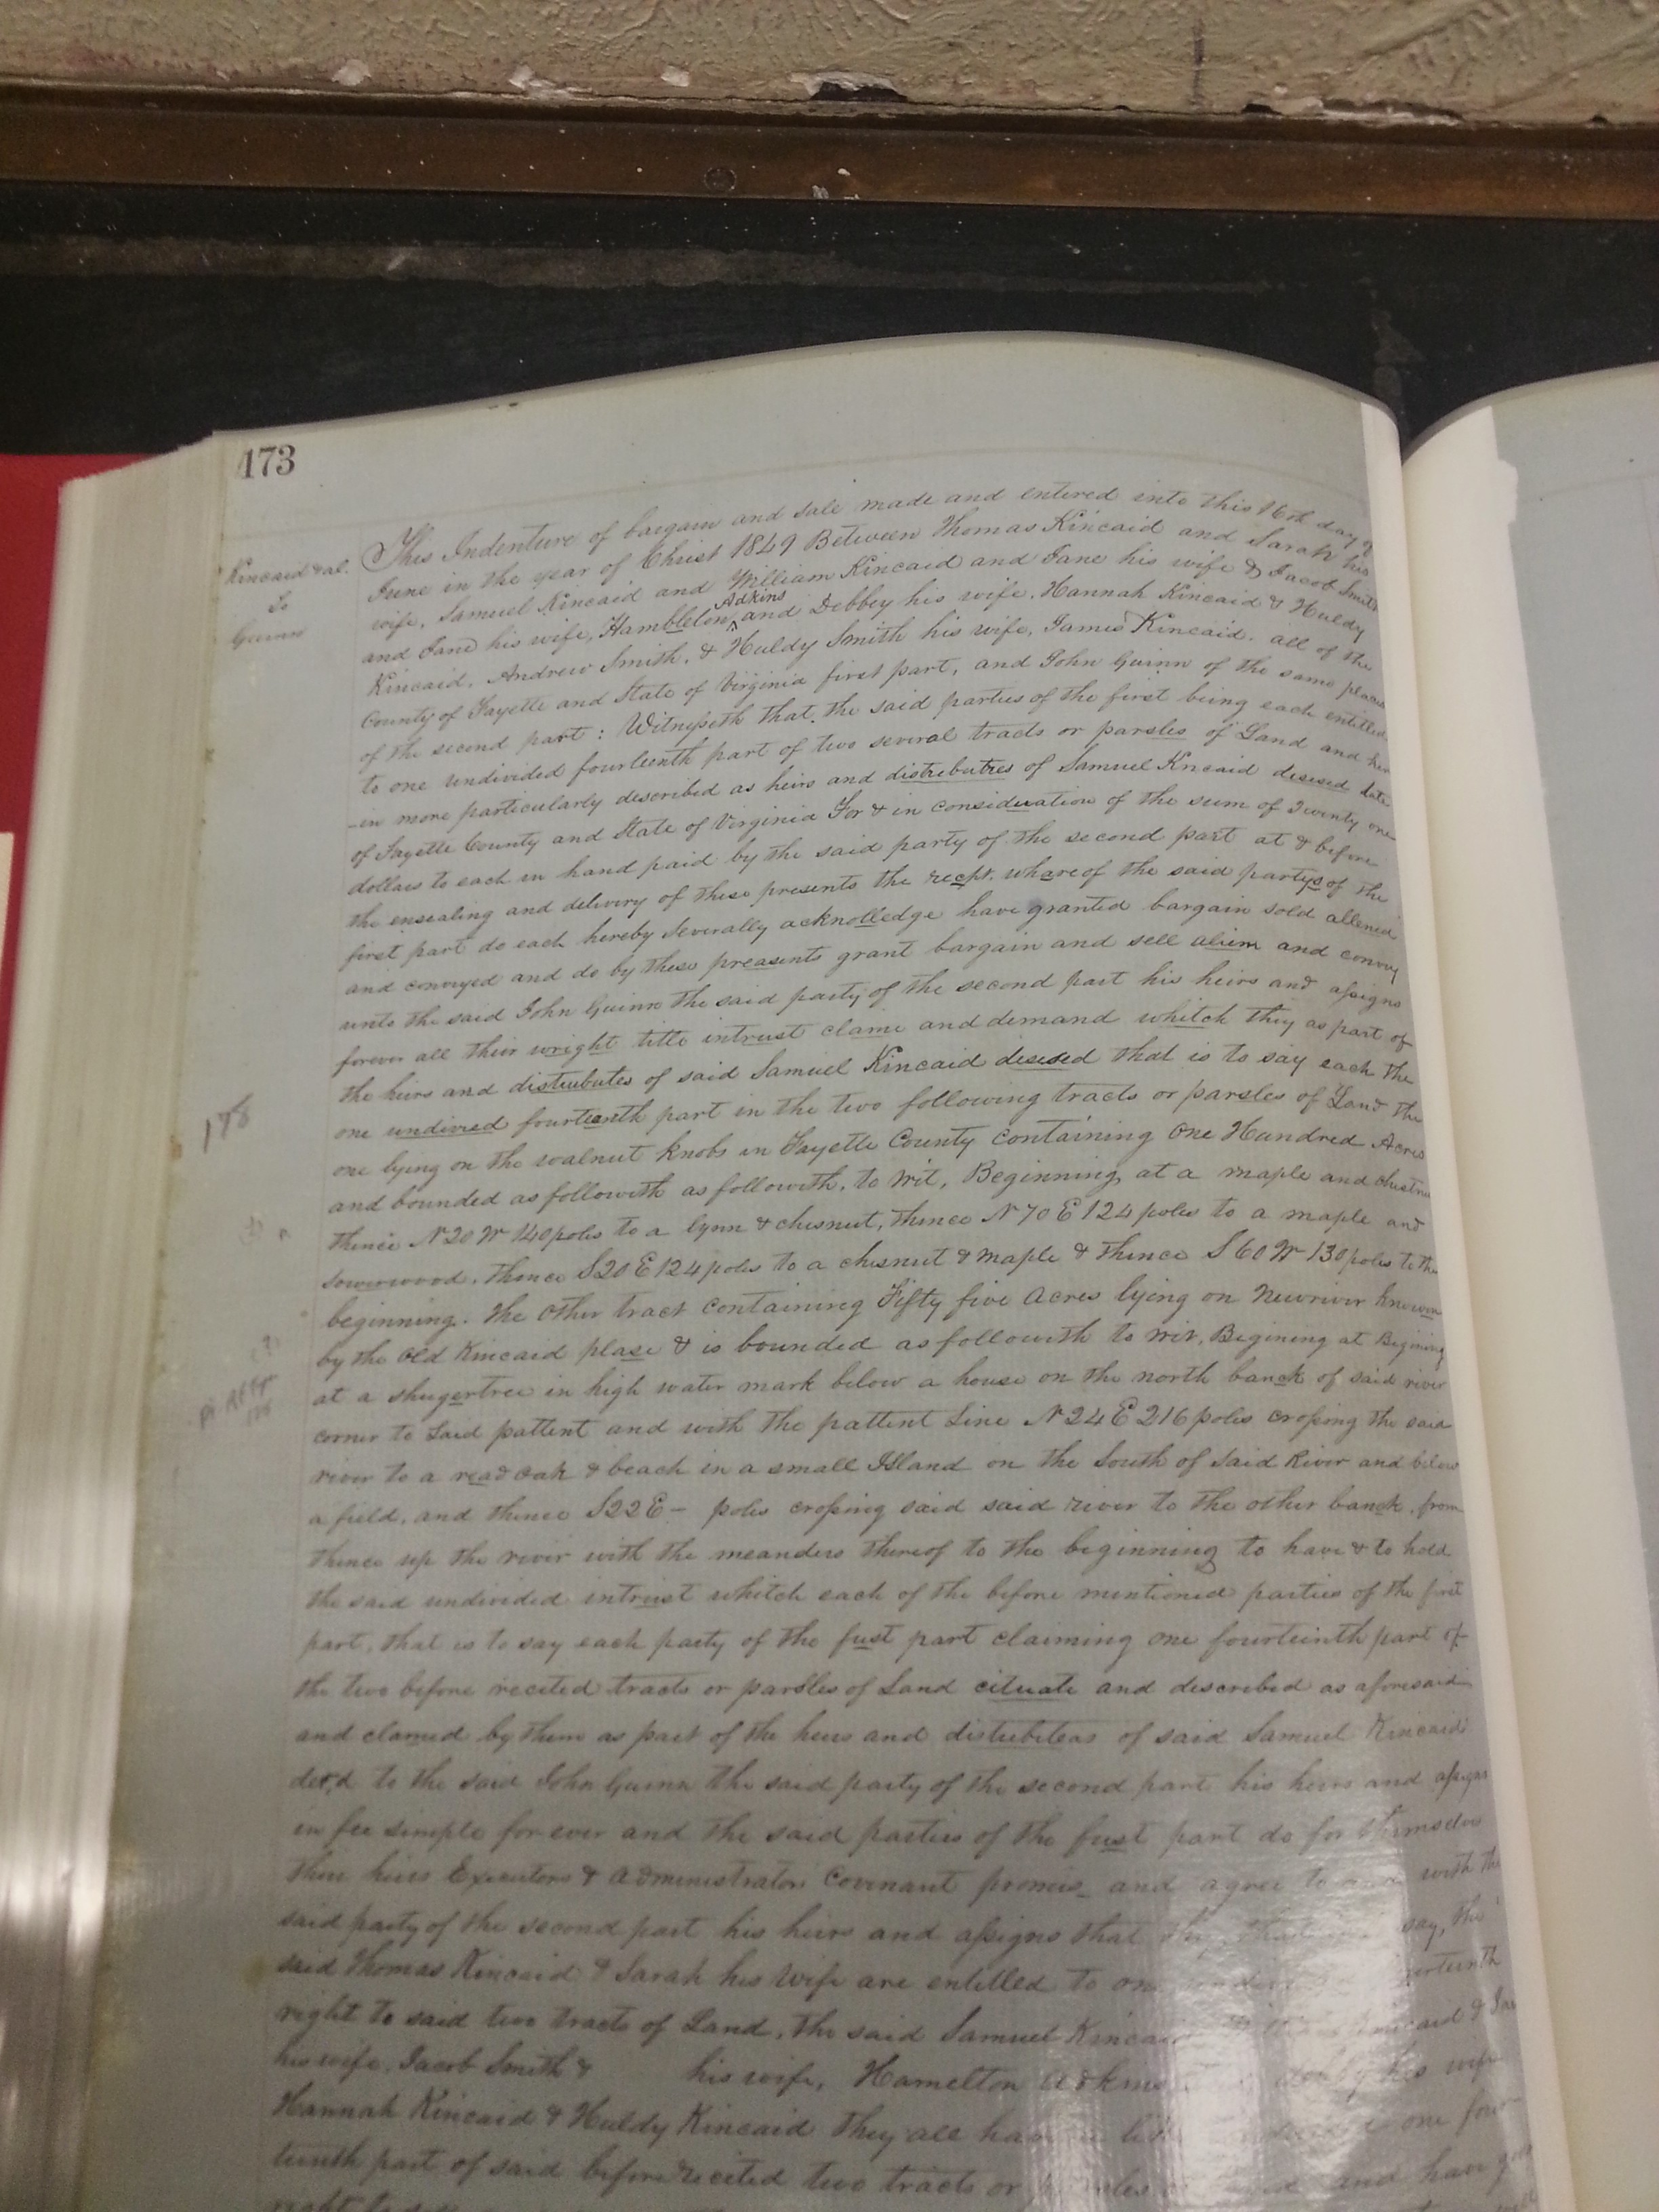 173
Kincaid & al.
To
Guinn
This Indenture of bargain and sale made and entered into this 16th day of
June in the year of Christ 1849 Between Thomas Kincaid and Sarah his
wife, Samuel Kincaid and William Kincaid and Jane his wife & Jacob Smith
and Jane his wife, Hambleton Adkins and Debbey his wife, Hannah Kincaid & Huldy
Kincaid, Andrew Smith, & Huldy Smith his wife, James Kincaid. all of the
County of Fayette and State of Virginia first part, and John Guinn of the same place
of the second part: Witnesseth that the said parties of the first being each entitled
to one undivided fourteenth part of two several tracts or parsles of Land and her
-in more particularly described as heirs and distributres of Samuel Kncaid desesed late
of Fayette County and State of Virginia For & in consideration of the sum of Twenty one
dollars to each in hand paid by the said party of the second part at & before
the ensealing and delivery of these presents the recpt. whareof the said partys of the
first part do each hereby severally acknolledge have granted bargain sold aliened
and conveyed and do by these preasents grant bargain and sell alien and convey
unto the said John Guinn the said party of the second part his heirs and assigns
forever all their wright title intrust clame and demand whitch they as part of
the heirs and distributes of said Samuel Kincaid desesed that is to say each the
one undivied fourteenth part in the two following tracts or parsles of Land the
one lying on the walnut knobs in Fayette County containing One Hundred Acres
and bounded as followith as followith, to wit, Beginning at a maple and chestnu
thence N 20 W 140 poles to a lynn & chesnut, thence N 70 E 124 poles to a maple and
sowerwood, thence S 20 E 124 poles to a chesnut & maple & thence S 60 W 130 poles to the
beginning. The other tract containing Fifty five acres lying on Newriver known
by the old Kincaid plase & is bounded as followith to wit, Begining at Begining
at a shugertree in high water mark below a house on the north banck of said river
corner to said pattent and with the pattent Line N 24 E 216 poles crossing the said
river to a read oak & beach in a small Island on the South of said River and below
a field, and thence S 22 E – poles crossing said said river to the other banck, from
thence up the river with the meanders thereof to the beginning to have & to hold
the said undivided intrust whitch each of the before mentioned parties of the first
part, that is to say each party of the fust part claiming one fourteenth part of
the two before recited tracts or parsles of Land cituate and described as aforesaid
and clamed by them as part of the heirs and distributeas of said Samuel Kincaid
dec,d to the said John Guinn the said party of the second part his heirs and assigns
in fee simple for ever and the said parties of the fust part do for themselves
their heirs Executors & administrators covenant promis_ and agree to and with the
said party of the second part his heirs and assigns that they say, the
said Thomas Kincaid & Sarah his wife are entitled to one
right to said two tracts of Land, the said Samuel Kincaid Kincaid & Jane
his wife, Jacob Smith & his wife, Hamelton Adkins his wife
Hannah Kincaid & Huldy Kincaid They all have one four
teenth part of said before recited two tracts or and have
178